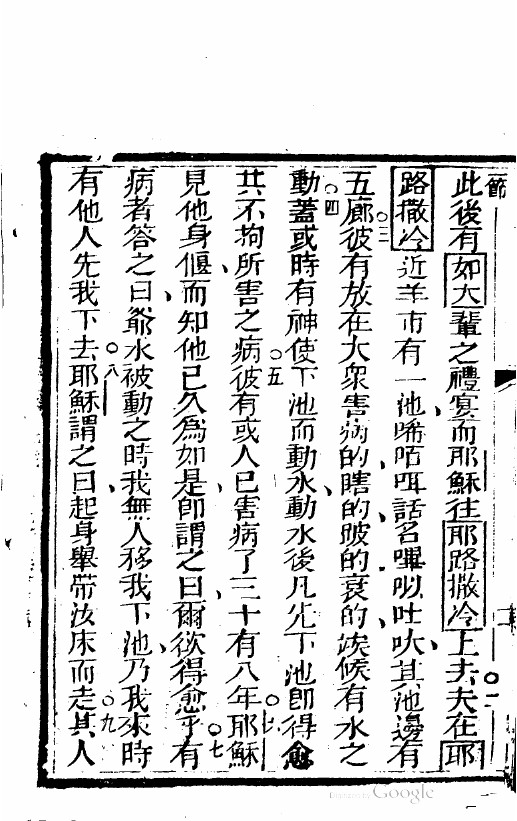 節
此後有如大輩之禮宴而耶穌往耶路撒冷上去夫在耶
路撒冷近羊市有一池唏咟咡話名嗶吐吙其池邊有
五廊彼有放在大眾害病的瞎的跛的衰的俟候有水之
動蓋或時有神使下池而動水動水後凡先下池即得愈
共不拘所害之病彼有或人已害病了三十有八年耶穌
見他身偃而知他已久為如是即謂之曰爾欲得愈乎有
病者答之曰爺水被動之時我無人移我下池乃我來時
有他人先我下去耶穌謂之曰起身舉帶汝床而走其人
Google